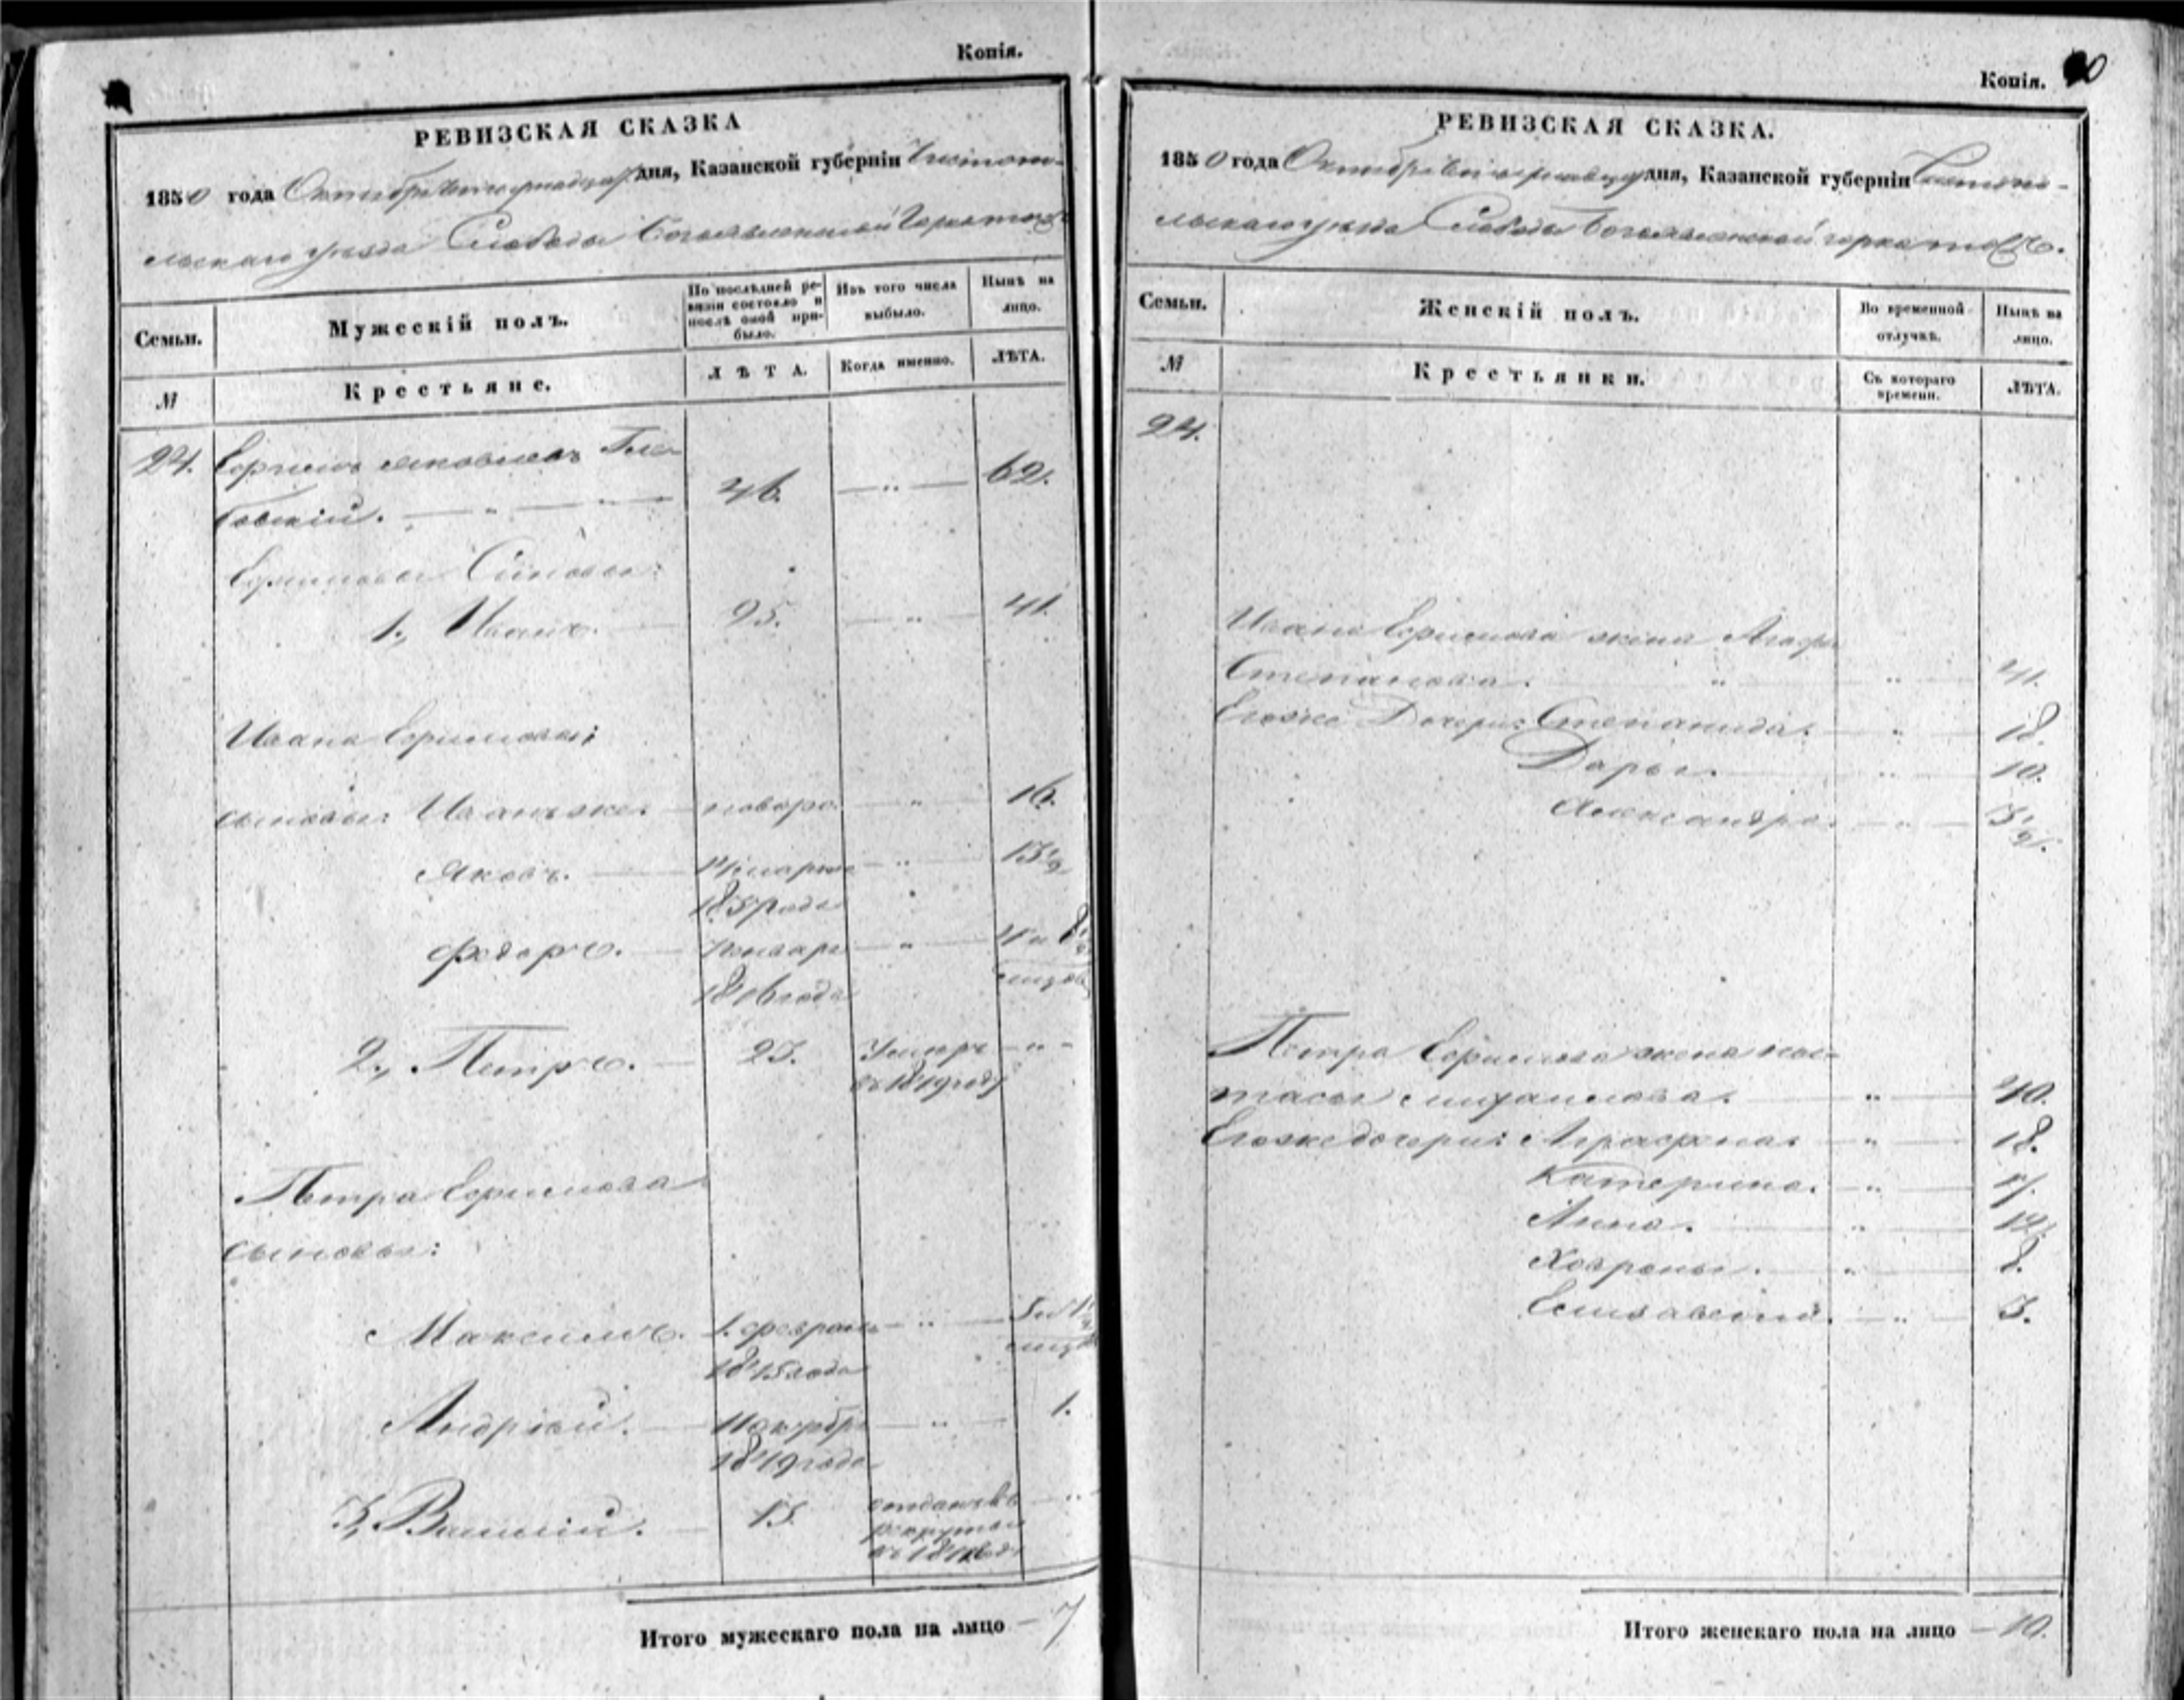 Копія.
РЕВИЗСКАЯ СКАЗКА
1850 года Октября дня, Казанской губерніи Чистопо-
льскаго уѣзда Слободы Богоявленской Горки тожъ
Семьи.
Мужескій полъ.
По послѣдней ре-
визіи состояло и
послѣ оной при-
было.
Изъ того числа
выбыло.
Нынѣ на
лицо.
№
Крестьяне.
ЛѢТА.
Когда именно.
ЛѢТА.
24. Ефимъ Яковлевъ
46. — „ — 62.
Ефимовы Сыновья:
1., Иванъ. — 25. — „ — 41.
Ивана Ефимова:
сыновья: Иванъ же. — новоро. — „ — 16.
Яковъ. — марта — „ — 13½
1837 года
Федоръ. — Января — „ —
1846 года
2., Петръ. — 23. Умеръ — „ —
въ 1849 году
Петра Ефимова
сыновья:
Максимъ. — 1. февраля — „ —
1845 года
Андрей. — Октября — „ — 1.
1849 года
3., Василій. — 15. отданъ въ — „ —
рекруты
Итого мужескаго пола на лицо — 7
Копія.
РЕВИЗСКАЯ СКАЗКА.
1850 года Октября дня, Казанской губерніи Чистопо-
льскаго уѣзда Слободы Богоявленской Горка тожъ.
Семьи.
Женскій полъ.
Во временной
отлучкѣ.
Нынѣ на
лицо.
№
Крестьянки.
Съ котораго
времени.
ЛѢТА.
24.
Ивана Ефимова жена
Степанова. „ — „ — 41.
Егоже Дочери: Степанида. — „ — 18.
Дарья. — „ — 10.
Александра. — „ — 3½.
Петра Ефимова жена Нас-
тасья Михайлова. — „ — 40.
Егоже дочери: Аграфена. — „ — 18.
Катерина. — „ —
Анна. — „ — 12.
Хавронья. — „ — 8.
Елизавета. — „ — 3.
Итого женскаго пола на лицо — 10.